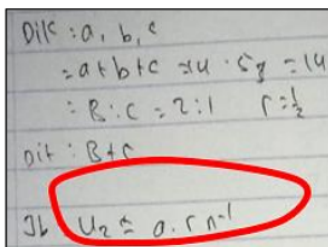 Dik : a, b, c
= a + b + c = 14 . S3 = 14
= B : C = 2 : 1 r = 1/2
Dit : B + C
Jb U2 = a . r n-1